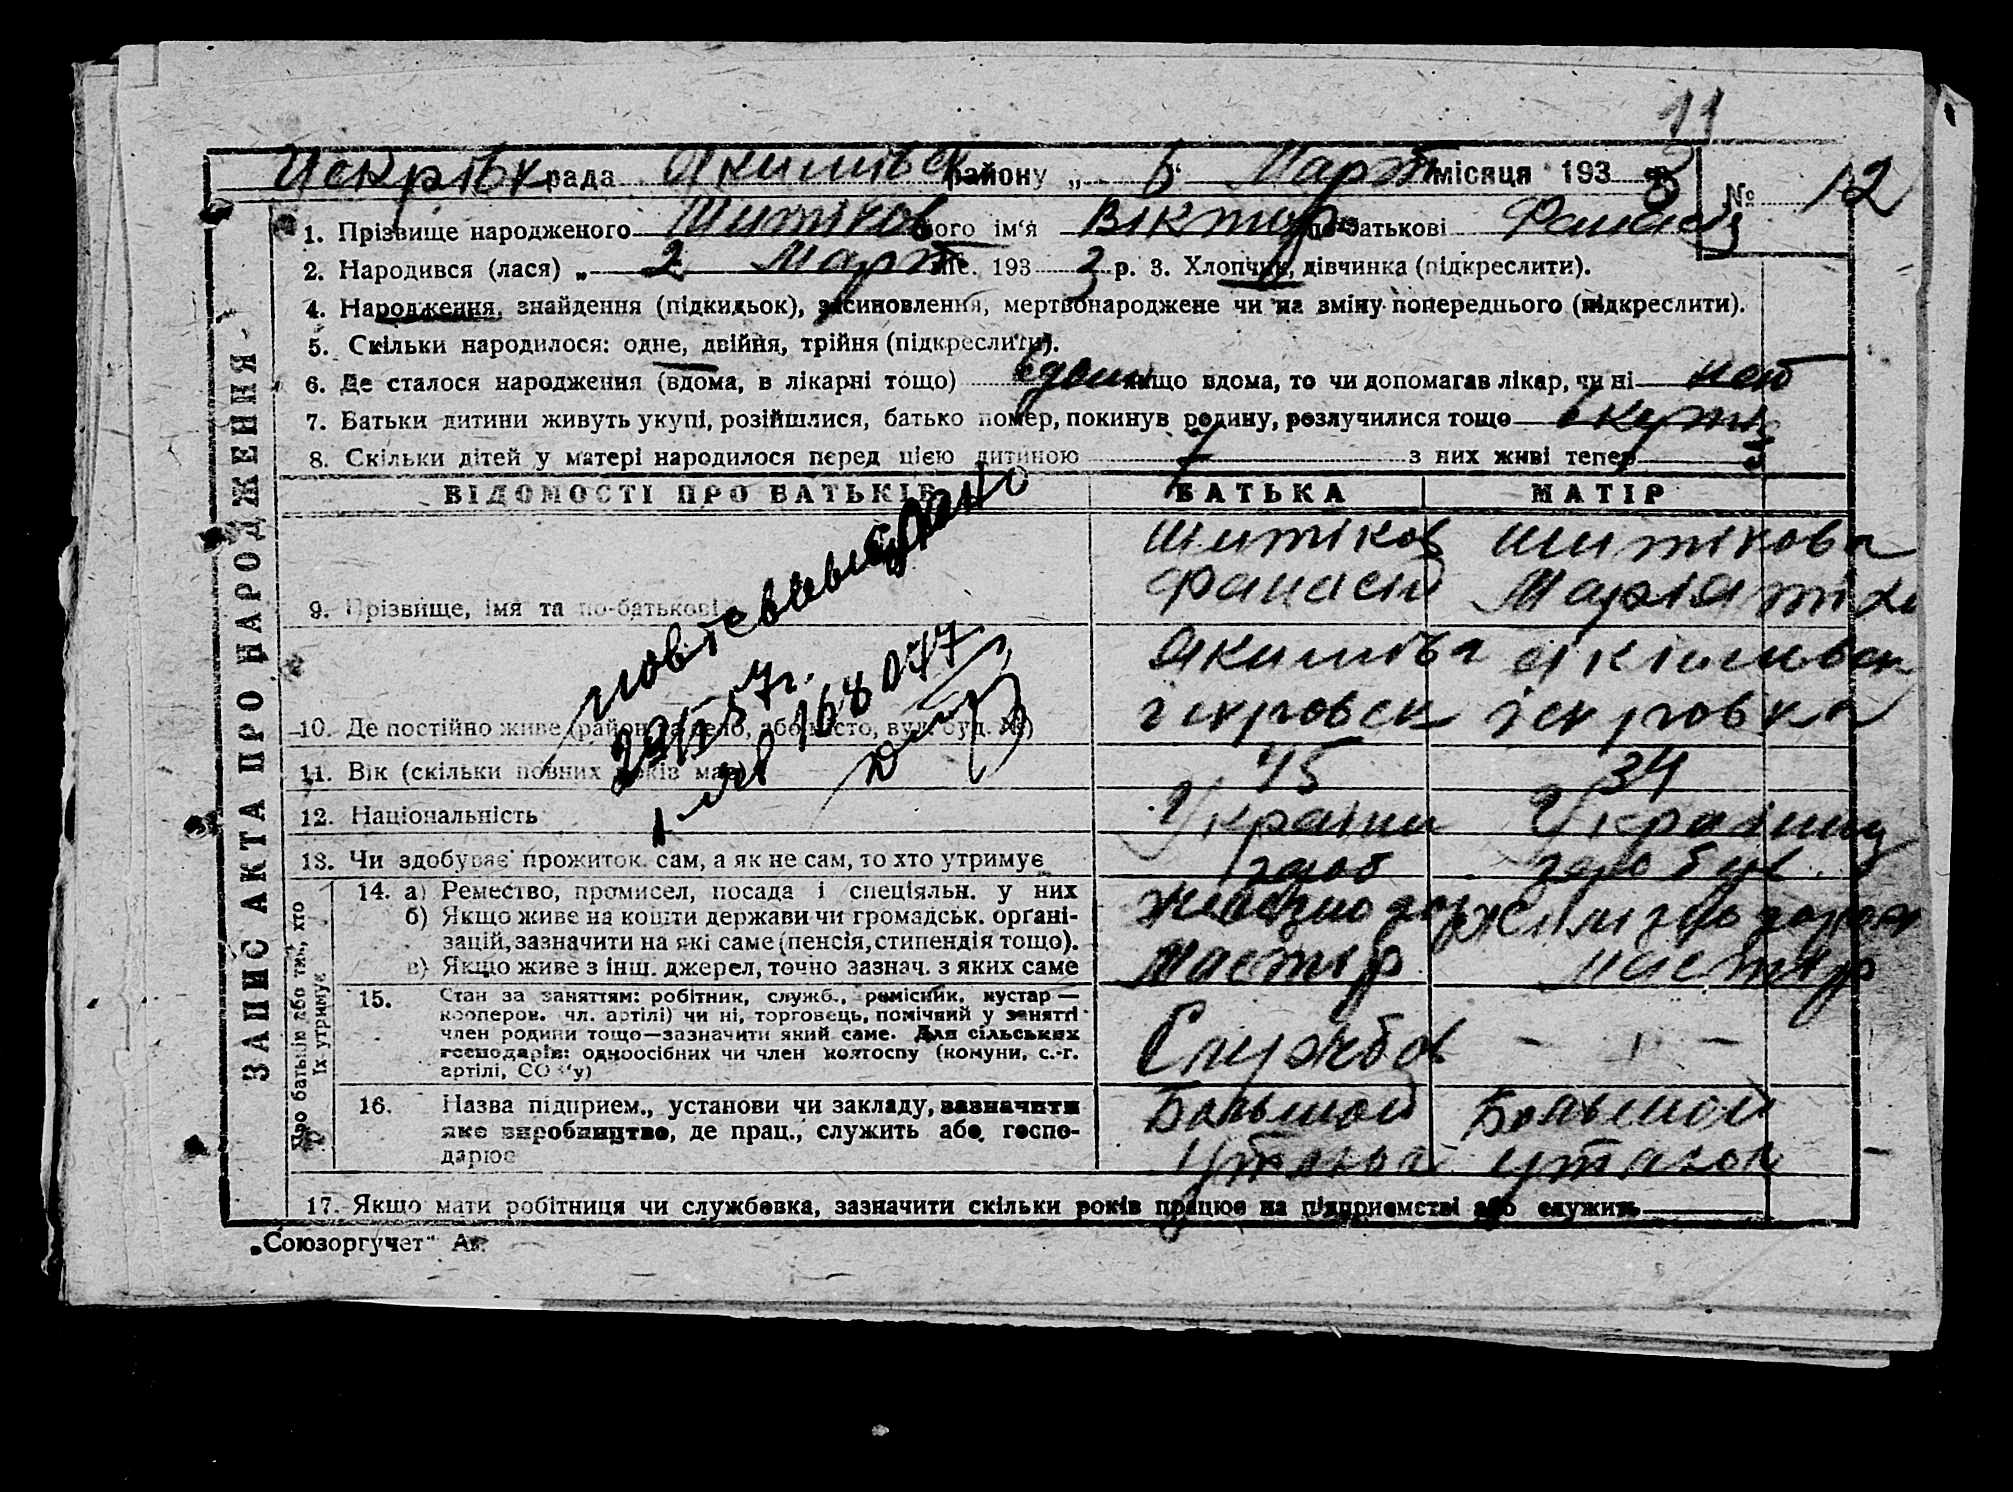 11
Искрівк рада Якимівск району „ 5 " Март місяця 193 3 № 12
ЗАПИС АКТА ПРО НАРОДЖЕННЯ
1. Прізвище народженого Шитіков його ім'я Віктор по-батькові
2. Народився (лася) „ 2 Март міс. 193 3 р. 3. Хлопчик, дівчинка (підкреслити).
4. Народження, знайдення (підкидьок), засиновлення, мертвонароджене чи на зміну попереднього (підкреслити).
5. Скільки народилося: одне, двійня, трійня (підкреслити).
6. Де сталося народження (вдома, в лікарні тощо) вдома якщо вдома, то чи допомагав лікар, чи ні нет
7. Батьки дитини живуть укупі, розійшлися, батько помер, покинув родину, розлучилися тощо вкупі
8. Скільки дітей у матері народилося перед цією дитиною 7 з них живі тепер 3
ВІДОМОСТІ ПРО БАТЬКІВ БАТЬКА МАТІР
Шитіков Шитікова
9. Прізвище, імя та по-батькові Фанасій Марія
Якимівка Якімивск
10. Де постійно живе (район та село, або місто, вул. буд. №) іскровск іскровка
11. Вік (скільки повних років має) 45 34
12. Національність Українц Україниц
13. Чи здобуває прожиток сам, а як не сам, то хто утримує
Про батьків або тих, хто їх утримує
14. а) Ремество, промисел, посада і спеціяльн. у них
б) Якщо живе на кошти держави чи громадськ. орґані-
зацій, зазначити на які саме (пенсія, стипендія тощо).
в) Якщо живе з інш. джерел, точно зазнач. з яких саме Мастір мастір
15. Стан за заняттям: робітник, служб., ремісник, кустар —
кооперов. чл. артілі) чи ні, торговець, помічний у занятті
член родини тощо—зазначити який саме. Для сільських
господарів: одноосібних чи член колгоспу (комуни, с.-г. Службов - - -
артілі, СОЗ'у)
16. Назва підприєм., установи чи закладу, зазначити Большой Большой
яке виробництво, де прац., служить або госпо- утлюк утлюк
дарює
17. Якщо мати робітниця чи службовка, зазначити скільки років працює на підприємстві або служить
„Союзоргучет"
57г.
168077